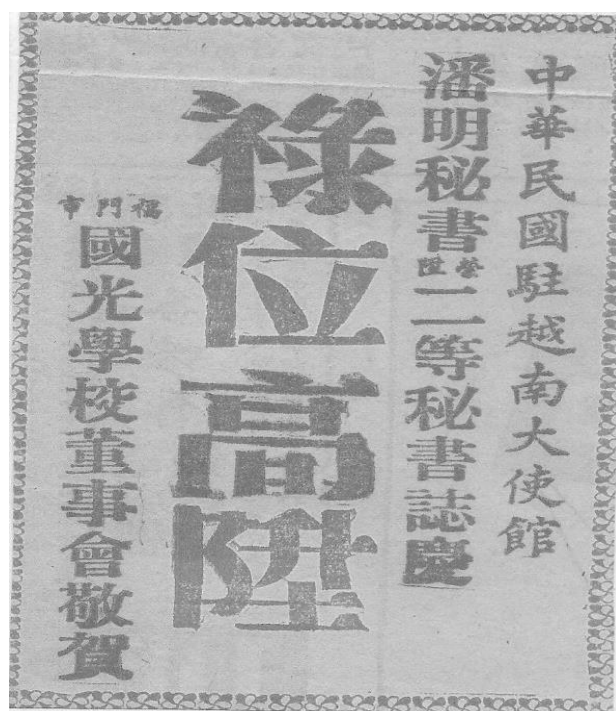 中華民國駐越南大使館
潘明秘書榮陞二等秘書誌慶
祿位高陞
福門市國光學校董事會敬賀